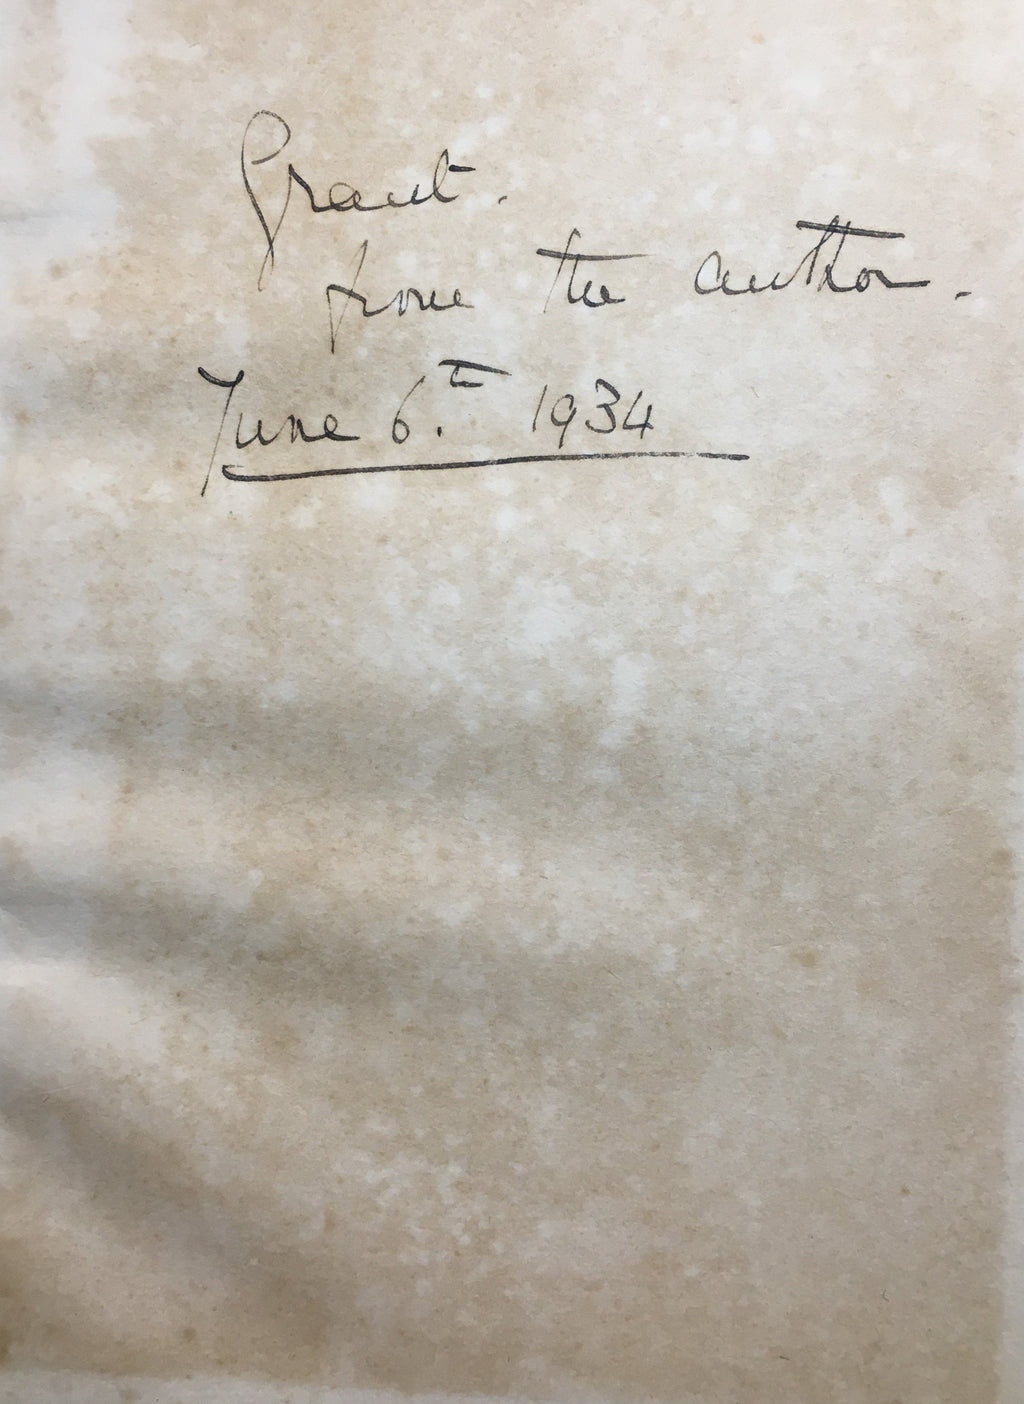 Grant.
from the author.
June 6.th 1934